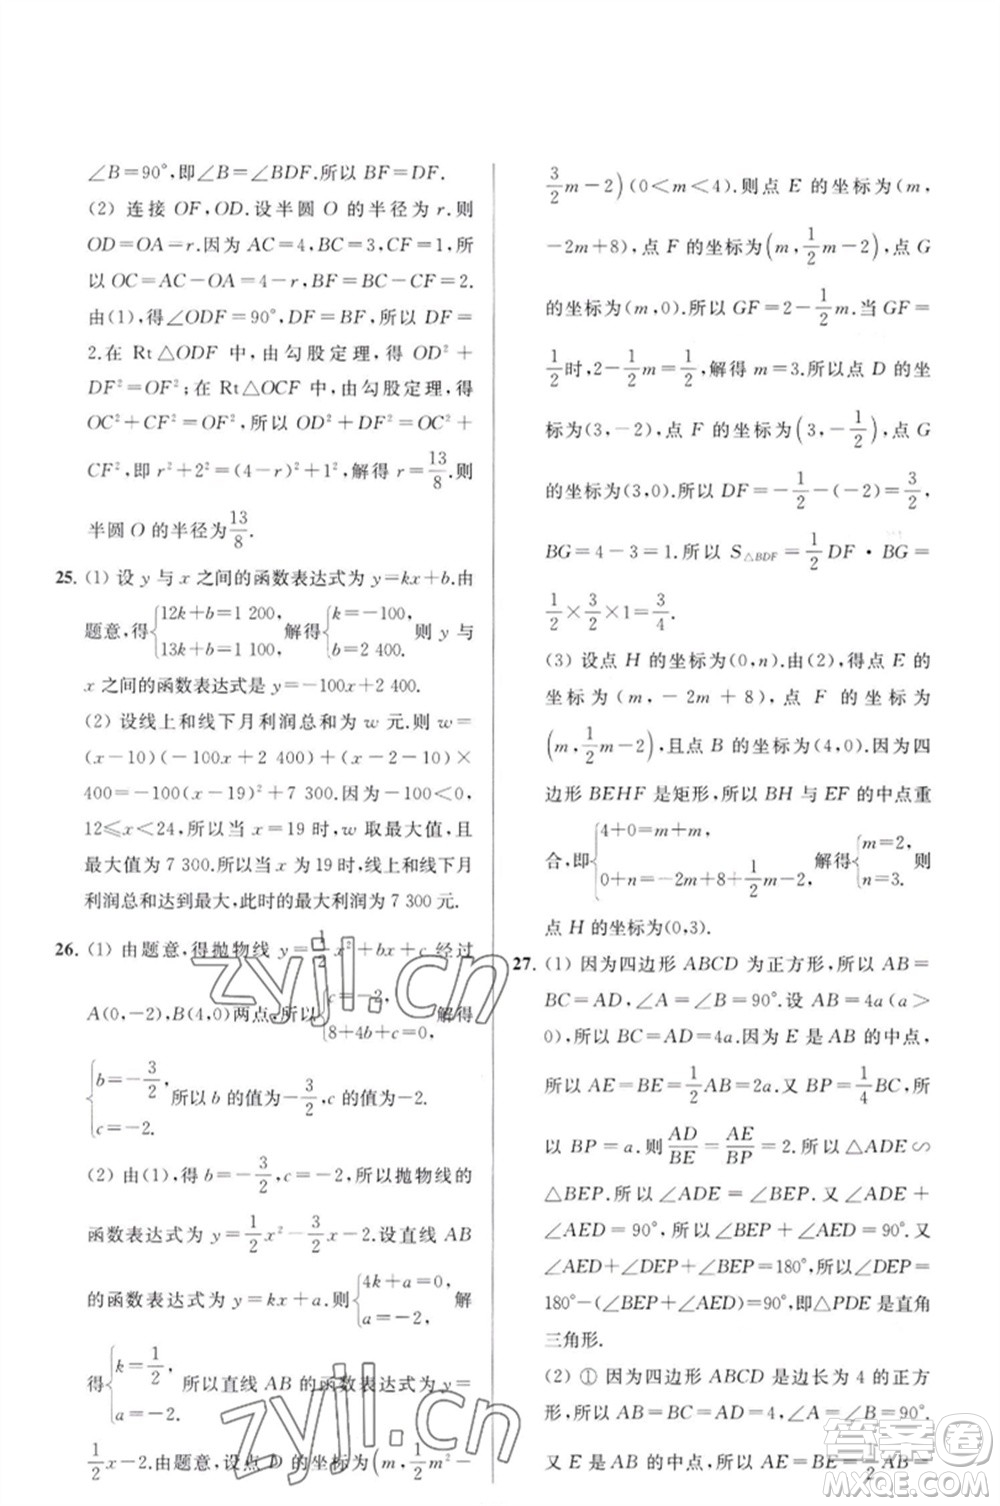 ∠B=90°,即∠B=∠BDF.所以 BF=DF.
(2) 连接 OF,OD.设半圆 O 的半径为 r.则
OD=OA=r.因为 AC=4,BC=3,CF=1,所
以 OC=AC-OA=4-r,BF=BC-CF=2.
由(1),得∠ODF=90°,DF=BF,所以 DF=
2.在 Rt△ODF 中,由勾股定理,得 OD²+
DF²=OF²;在 Rt△OCF 中,由勾股定理,得
OC²+CF²=OF²,所以 OD²+DF²=OC²+
CF²,即 r²+2²=(4-r)²+1²,解得 r=13/8.则
半圆 O 的半径为13/8.
25. (1) 设 y 与 x 之间的函数表达式为 y=kx+b.由
题意,得{12k+b=1 200, 13k+b=1 100.解得{k=-100, b=2 400.则 y 与
x 之间的函数表达式是 y=-100x+2 400.
(2) 设线上和线下月利润总和为 w 元.则 w=
(x-10)(-100x+2 400)+(x-2-10)×
400=-100(x-19)²+7 300.因为-100<0,
12≤x<24,所以当 x=19 时,w 取最大值,且
最大值为 7 300.所以当 x 为 19 时,线上和线下月
利润总和达到最大,此时的最大利润为 7 300 元.
26. (1) 由题意,得抛物线 y=1/2x²+bx+c 经过
A(0,-2),B(4,0)两点,所以{c=-2, 8+4b+c=0.解得
{b=-3/2, c=-2.所以 b 的值为-3/2,c 的值为-2.
(2) 由(1),得 b=-3/2,c=-2,所以抛物线的
函数表达式为 y=1/2x²-3/2x-2.设直线 AB
的函数表达式为 y=kx+a.则{4k+a=0, a=-2, 解
得{k=1/2, a=-2.所以直线 AB 的函数表达式为 y=
1/2x-2.由题意,设点 D 的坐标为(m,1/2m²-
3/2m-2)(0<m<4).则点 E 的坐标为(m,
-2m+8),点 F 的坐标为(m,1/2m-2),点 G
的坐标为(m,0).所以 GF=2-1/2m.当 GF=
1/2时,2-1/2m=1/2,解得 m=3.所以点 D 的坐
标为(3,-2),点 F 的坐标为(3,-1/2),点 G
的坐标为(3,0).所以 DF=-1/2-(-2)=3/2,
BG=4-3=1.所以 S△BDF=1/2DF·BG=
1/2×3/2×1=3/4.
(3) 设点 H 的坐标为(0,n).由(2),得点 E 的
坐标为(m,-2m+8),点 F 的坐标为
(m,1/2m-2),且点 B 的坐标为(4,0).因为四
边形 BEHF 是矩形,所以 BH 与 EF 的中点重
合,即{4+0=m+m, 0+n=-2m+8+1/2m-2.解得{m=2, n=3.则
点 H 的坐标为(0,3).
27. (1) 因为四边形 ABCD 为正方形,所以 AB=
BC=AD,∠A=∠B=90°.设 AB=4a(a>
0),所以 BC=AD=4a.因为 E 是 AB 的中点,
所以 AE=BE=1/2AB=2a.又 BP=1/4BC,所
以 BP=a.则AD/BE=AE/BP=2.所以△ADE∽
△BEP.所以∠ADE=∠BEP.又∠ADE+
∠AED=90°,所以∠BEP+∠AED=90°.又
∠AED+∠DEP+∠BEP=180°,所以∠DEP=
180°-(∠BEP+∠AED)=90°,即△PDE是直角
三角形.
(2) ① 因为四边形 ABCD 是边长为 4 的正方
形,所以 AB=BC=AD=4,∠A=∠B=90°.
又 E 是 AB 的中点,所以 AE=BE=1/2AB=
zyjl.cn
zyjl.cn
答案圈
MXQE.COM